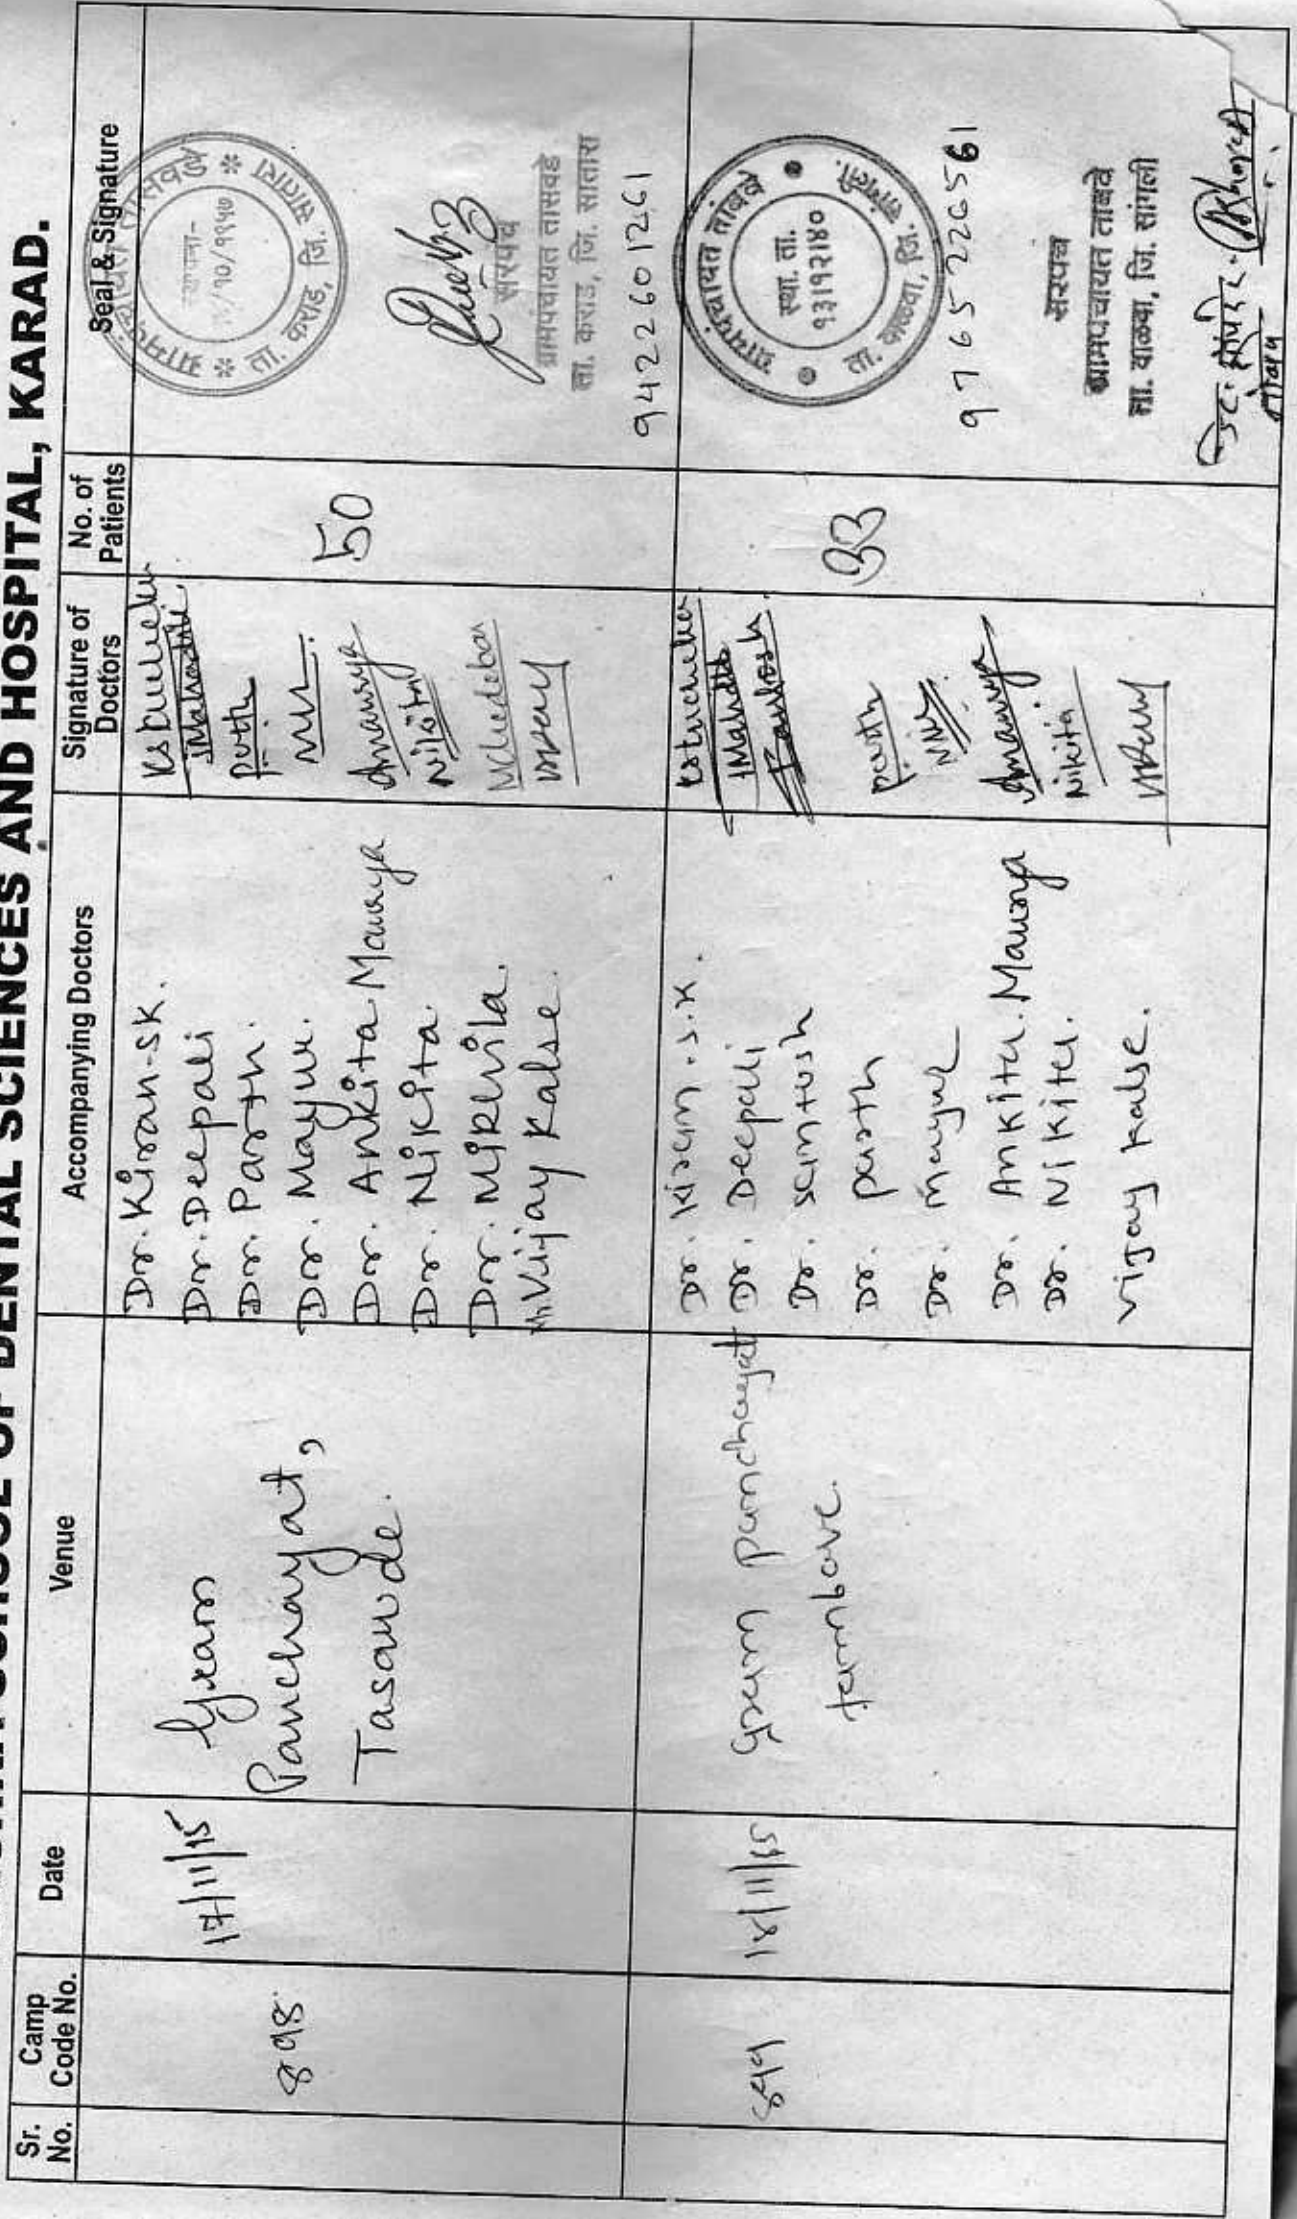 SCHOOL OF DENTAL SCIENCES AND HOSPITAL, KARAD.
Sr. No.
Camp Code No.
Date
Venue
Accompanying Doctors
Signature of Doctors
No. of Patients
Seal & Signature
898
17/11/15
Gram
Panchayat,
Tasawde.
Dr. Kiran.S.K.
Dr. Deepali
Dr. Parth.
Dr. Mayur.
Dr. Ankita Maurya
Dr. Nikita.
Dr. Mikhila.
Mr. Vijay Kalse.
Parth
Amaurya
Nikita
50
ता. कराड, जि. सातारा
सरपंच
ग्रामपंचायत तासवडे
ता. कराड, जि. सातारा
9422601261
899
18/11/15
Gram panchayat
tambave.
Dr. Kiran.S.K.
Dr. Deepali
Dr. Santosh
Dr. parth
Dr. mayur
Dr. Ankita. Maurya
Dr. Nikita.
Vijay Kalse.
Santosh
parth
Amaurya
Nikita
33
ग्रामपंचायत तांबवे
स्था. ता.
१३।१२।४०
ता. वाळवा, जि. सांगली.
9765220561
सरपंच
ग्रामपंचायत तांबवे
ता. वाळवा, जि. सांगली